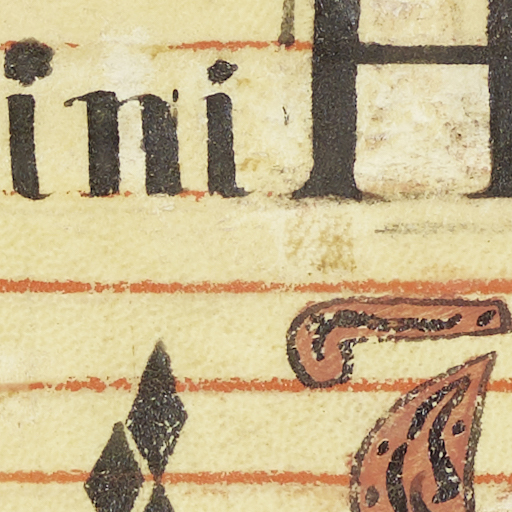 ini H